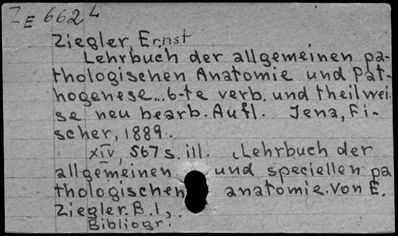 ZE 662 L
Ziegler Ernst
Lehrbuch der allgemeinen pa-
thologischen Anatomie und Pat-
hogenese...6-te verb. und theilwei
se neu bearb. Aufl. Jena, Fi-
scher, 1889.
XIV, 567 s. ill. „Lehrbuch der
allgemeinen und speciellen pa
thologischen anatomie. Von E.
Ziegler. B. I,
Bibliogr.